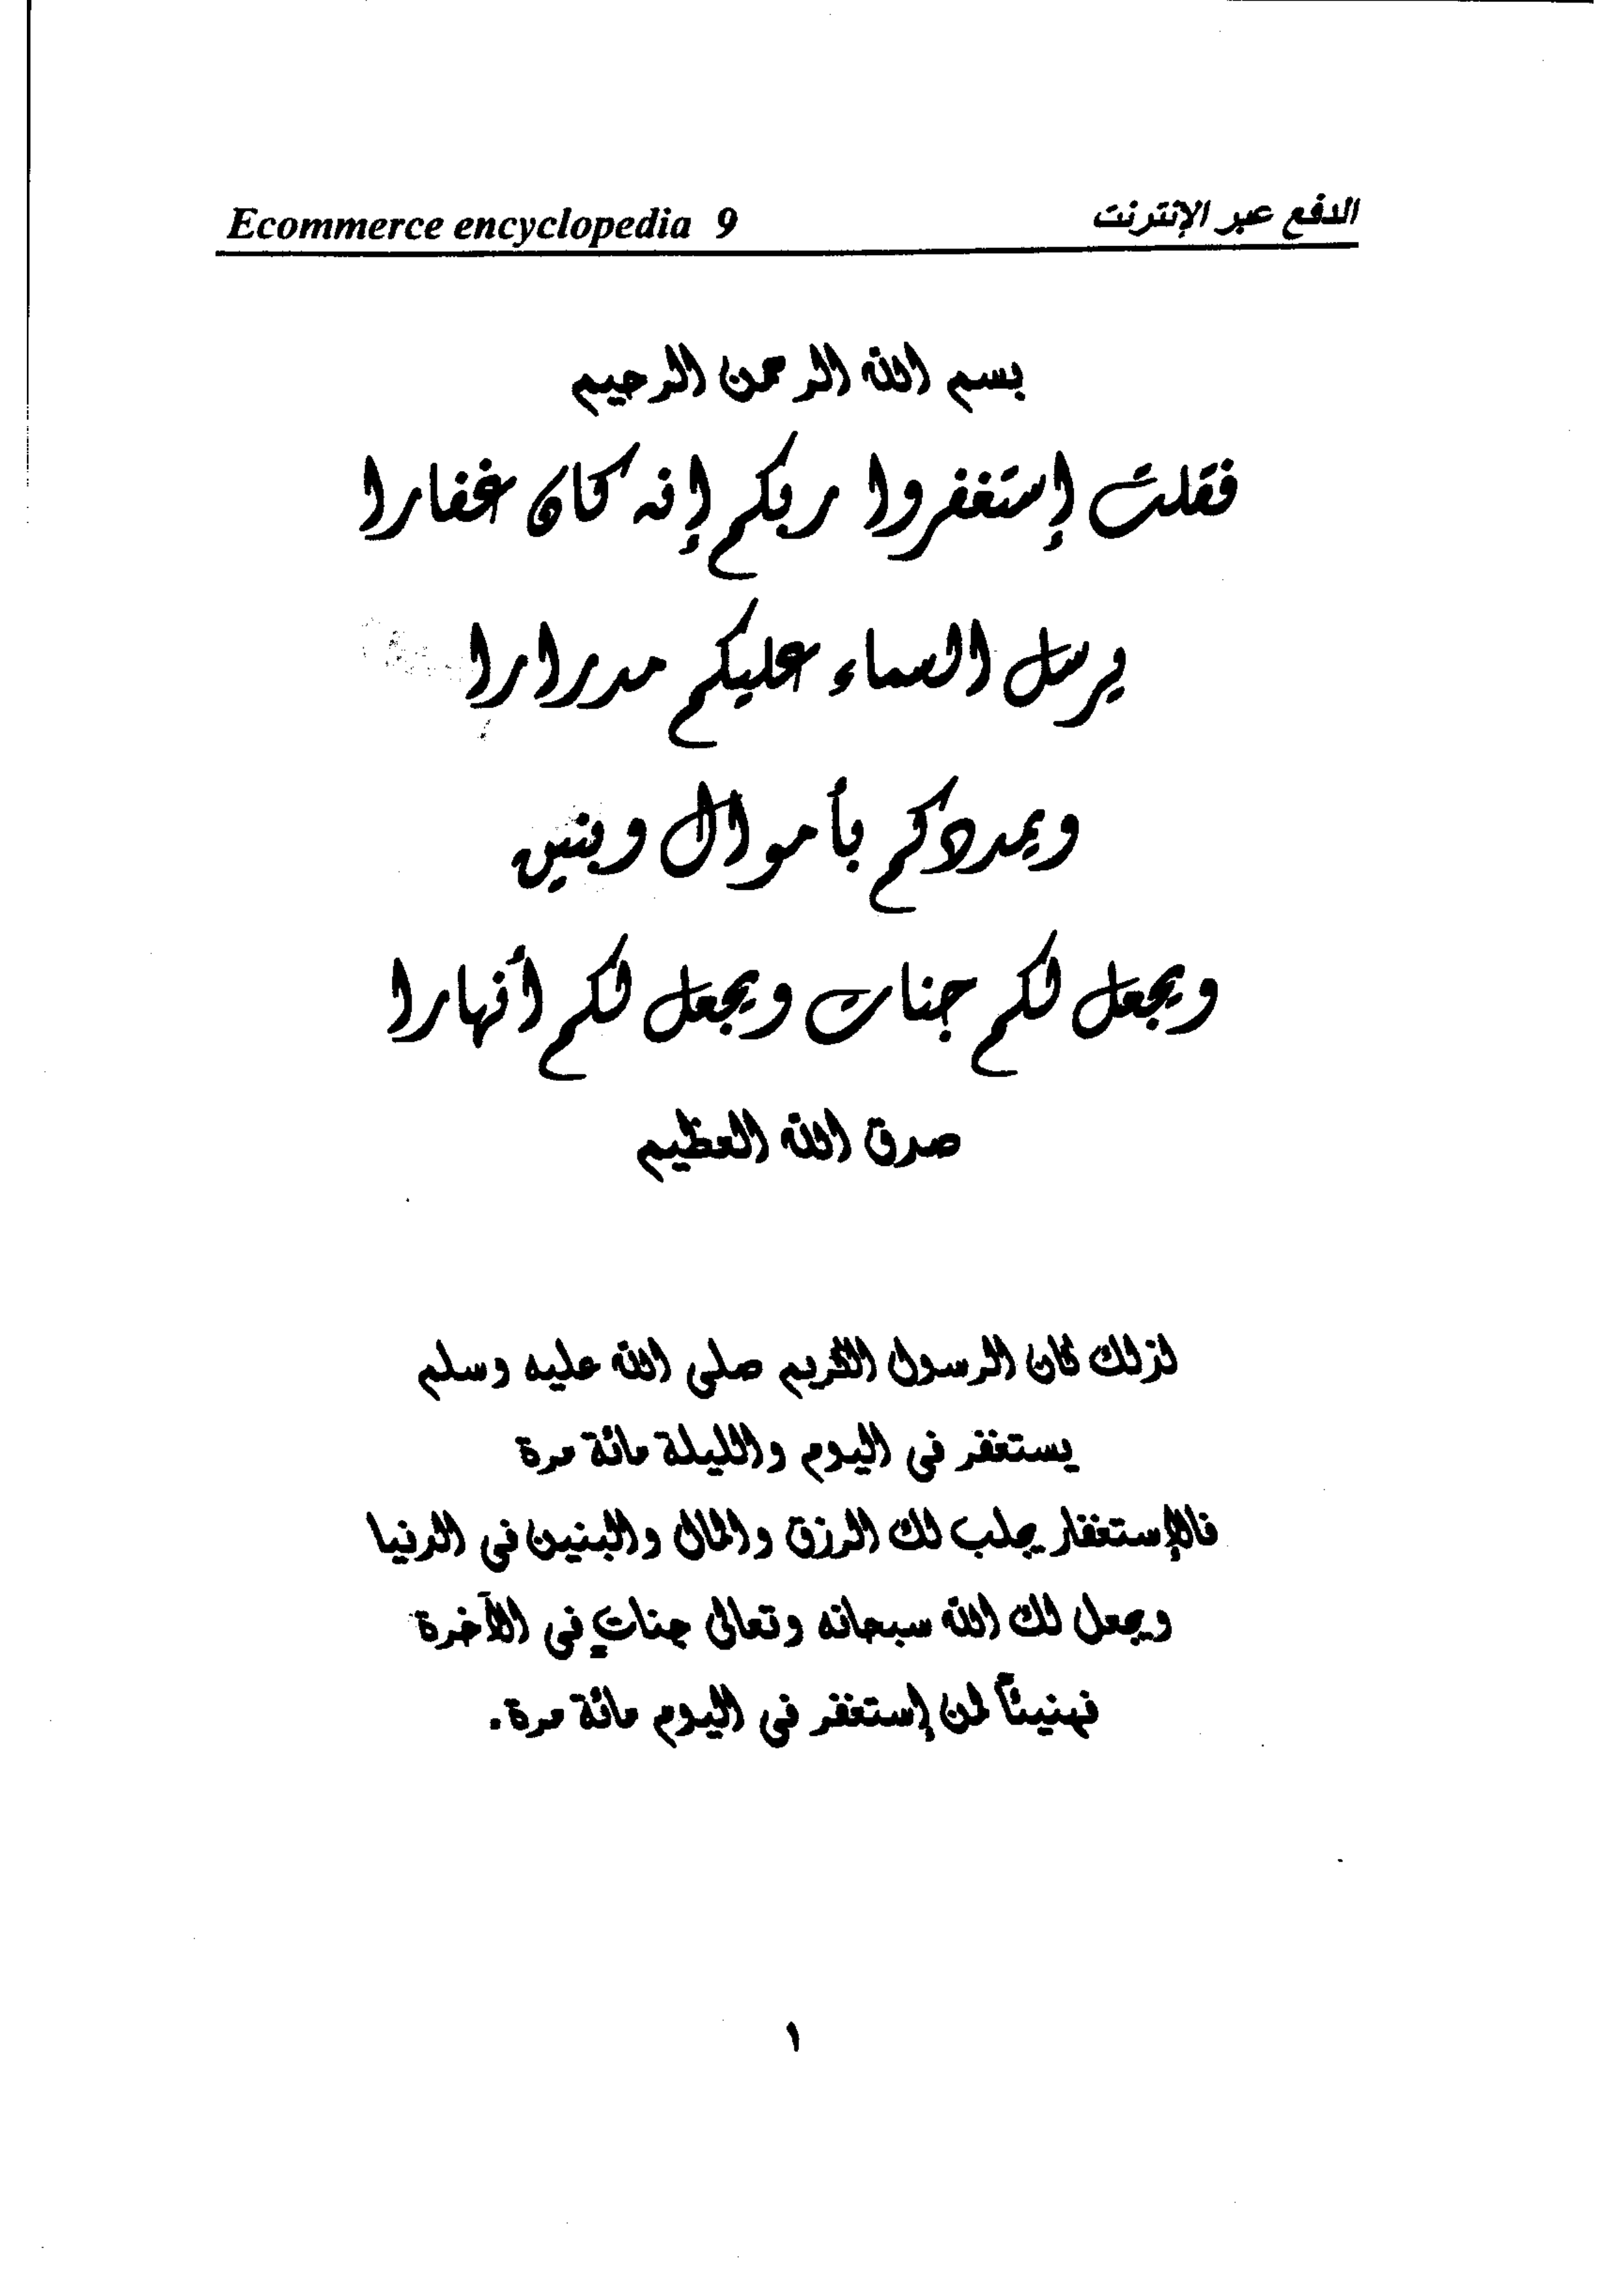 الدفع عبر الإنترنت Ecommerce encyclopedia 9
بسم الله الرحمن الرحيم
فقلت إستغفروا ربكم إنه كان غفارا
يرسل السماء عليكم مدرارا
ويمددكم بأموال وبنين
ويجعل لكم جنات ويجعل لكم أنهارا
صدق الله العظيم
لذلك كان الرسول الكريم صلى الله عليه وسلم
يستغفر فى اليوم والليلة مائة مرة
فالإستغفار يجلب لك الرزق والمال والبنين فى الدنيا
ويجعل لك الله سبحانه وتعالى جناتٍ فى الآخرة
فهنيئاً لمن إستغفر فى اليوم مائة مرة.
١